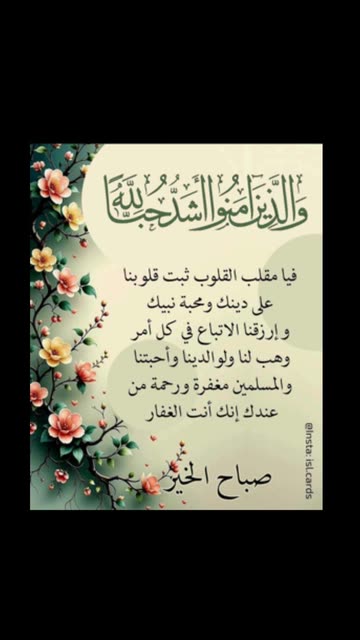 وَالَّذِينَ آمَنُوا أَشَدُّ حُبًّا لِلَّهِ
فيا مقلب القلوب ثبت قلوبنا
على دينك ومحبة نبيك
وإرزقنا الاتباع في كل أمر
وهب لنا ولوالدينا وأحبتنا
والمسلمين مغفرة ورحمة من
عندك إنك أنت الغفار
صباح الخير
@Insta: isl.cards